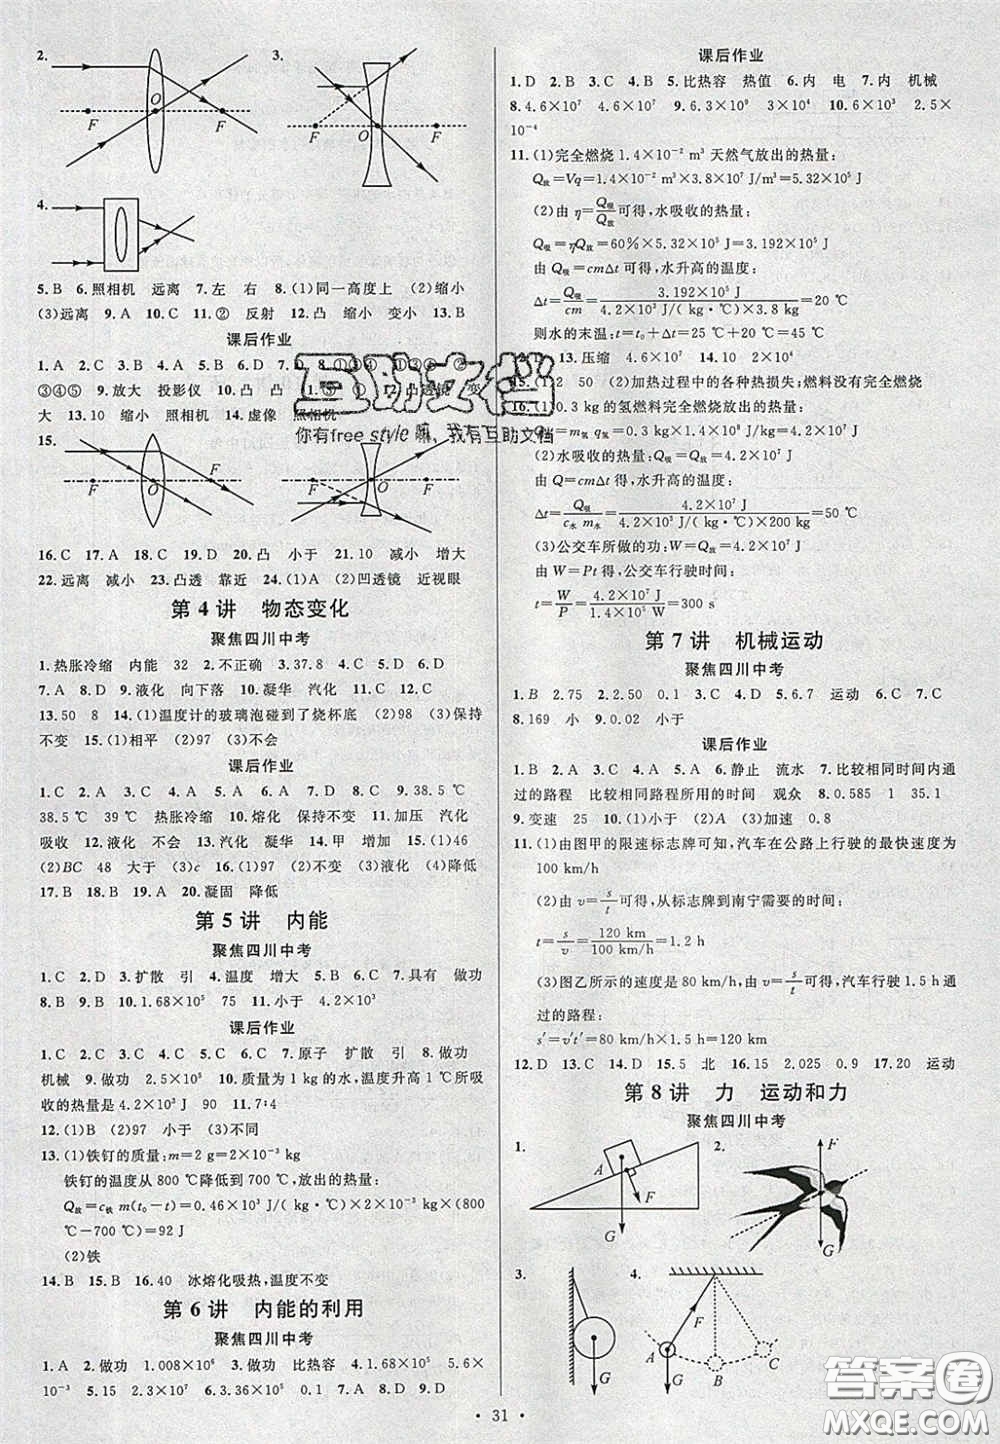 2.
3.
O
F
F
F
O
F
4.
5.B 6.照相机 远离 7.左 右 8.(1)同一高度上 (2)缩小
(3)远离 9.A 10.C 11.② 反射 12.凸 缩小 变小 13.B
课后作业
1.A 2.C 3.B 4.C 5.B 6.C 7.D
③④⑤ 9.放大 投影仪 10.凸 凸
大 13.10 缩小 照相机 14.虚像 照相机
互助文档
你有free style嘛，我有互助文档
15.
F
O
F
F
O
F
16.C 17.A 18.C 19.D 20.凸 小于 21.10 减小 增大
22.远离 减小 23.凸透 靠近 24.(1)A (2)凹透镜 近视眼
第4讲 物态变化
聚焦四川中考
1.热胀冷缩 内能 32 2.不正确 3.37.8 4.C 5.D 6.D
7.D 8.D 9.液化 向下落 10.凝华 汽化 11.C 12.C
13.50 8 14.(1)温度计的玻璃泡碰到了烧杯底 (2)98 (3)保持
不变 15.(1)相平 (2)97 (3)不会
课后作业
1.C 2.C 3.D 4.A 5.C 6.C 7.A 8.C 9.38.5 ℃
38.5 ℃ 39 ℃ 热胀冷缩 10.熔化 保持不变 11.加压 汽化
吸收 12.液化 不会 13.汽化 凝华 14.甲 增加 15.(1)46
(2)BC 48 大于 (3)c 16.(1)97 (2)不变 (3)不变 (4)降低
17.B 18.A 19.A 20.凝固 降低
第5讲 内能
聚焦四川中考
1.C 2.D 3.扩散 引 4.温度 增大 5.B 6.C 7.具有 做功
8.B 9.B 10.1.68×10⁵ 75 11.小于 4.2×10³
课后作业
1.C 2.C 3.D 4.C 5.C 6.C 7.原子 扩散 引 8.做功
机械 9.做功 2.5×10⁵ 10.质量为1 kg的水,温度升高1 ℃吸收
的热量是4.2×10³ J 90 11.7∶4
12.(1)B (2)97 小于 (3)不同
13.(1)铁钉的质量:m=2 g=2×10⁻³ kg
铁钉的温度从800 ℃降低到700 ℃,放出的热量:
Q放=c铁 m(t₀−t)=0.46×10³ J/(kg·℃)×2×10⁻³ kg×(800
℃−700 ℃)=92 J
(2)铁
14.B 15.B 16.40 冰熔化吸热,温度不变
第6讲 内能的利用
聚焦四川中考
1.A 2.做功 1.008×10⁶ 3.做功 比热容 4.1.68×10⁵ 5.6×
10⁻³ 5.15 2.3×10⁷ 6.9.2×10⁷ 2×10⁵ 7.B 8.D 9.D
课后作业
1.D 2.B 3.C 4.B 5.比热容 热值 6.内 电 7.内 机械
8.4.6×10⁷ 4.6×10⁷ 9.6.3×10⁹ 3×10⁴ 10.6×10³ 2.5×
10⁻⁴
11.(1)完全燃烧1.4×10⁻² m³天然气放出的热量:
Q放=Vq=1.4×10⁻² m³×3.8×10⁷ J/m³=5.32×10⁵ J
(2)由η=Q吸/Q放可得,水吸收的热量:
Q吸=ηQ放=60%×5.32×10⁵ J=3.192×10⁵ J
由Q吸=cmΔt可得,水升高的温度:
Δt=Q吸/cm=3.192×10⁵ J/4.2×10³ J/(kg·℃)×3.8 kg=20 ℃
则水的末温:t=t₀+Δt=25 ℃+20 ℃=45 ℃
13.压缩 4.6×10⁷ 14.10 2×10⁴
15.(1)2 50 (2)加热过程中的各种热损失;燃料没有完全燃烧
16.(1)0.3 kg的氢燃料完全燃烧放出的热量:
Q放=m氢 q氢=0.3 kg×1.4×10⁸ J/kg=4.2×10⁷ J
(2)水吸收的热量:Q吸=Q放=4.2×10⁷ J
由Q=cmΔt得,水升高的温度:
Δt=Q吸/c水 m水=4.2×10⁷ J/4.2×10³ J/(kg·℃)×200 kg=50 ℃
(3)公交车所做的功:W=Q放=4.2×10⁷ J
由W=Pt得,公交车行驶时间:
t=W/P=4.2×10⁷ J/1.4×10⁵ W=300 s
第7讲 机械运动
聚焦四川中考
1.B 2.75 2.2.50 0.1 3.C 4.D 5.6.7 运动 6.C 7.C
8.169 小 9.0.02 小于
课后作业
1.B 2.A 3.C 4.A 5.A 6.静止 流水 7.比较相同时间内通
过的路程 比较相同路程所用的时间 观众 8.0.585 1 35.1
9.变速 25 10.(1)小于 (2)A (3)加速 0.8
11.(1)由图甲的限速标志牌可知,汽车在公路上行驶的最快速度为
100 km/h
(2)由v=s/t可得,从标志牌到南宁需要的时间:
t=s/v=120 km/100 km/h=1.2 h
(3)图乙所示的速度是80 km/h,由v=s/t可得,汽车行驶1.5 h通
过的路程:
s′=v′t′=80 km/h×1.5 h=120 km
12.D 13.C 14.D 15.5 北 16.15 2.025 0.9 17.20 运动
第8讲 力 运动和力
聚焦四川中考
1.
A
F
G
2.
F
G
3.
G
4.
F
A
B
C
G
· 31 ·
答案圈
MXQE.COM